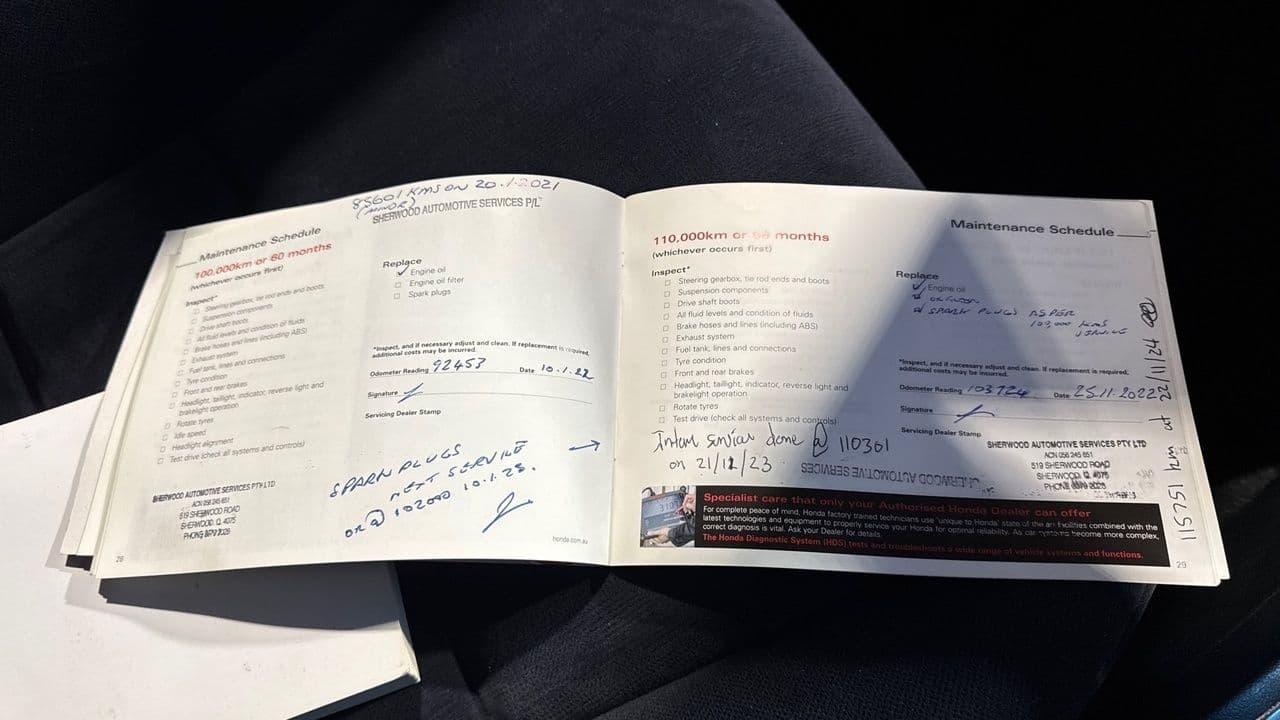 85601 KMS ON 20.1.2021
(MINOR)
SHERWOOD AUTOMOTIVE SERVICES P/L
Maintenance Schedule
100,000km or 60 months
(whichever occurs first)
Inspect*
Steering gearbox, tie rod ends and boots
Suspension components
Drive shaft boots
All fluid levels and condition of fluids
Brake hoses and lines (including ABS)
Exhaust system
Fuel tank, lines and connections
Tyre condition
Front and rear brakes
Headlight, taillight, indicator, reverse light and
brakelight operation
Rotate tyres
Idle speed
Headlight alignment
Test drive (check all systems and controls)
SHERWOOD AUTOMOTIVE SERVICES PTY LTD
ACN 056 245 651
519 SHERWOOD ROAD
SHERWOOD, Q. 4075
PHONE
Replace
Engine oil
Engine oil filter
Spark plugs
*Inspect, and if necessary adjust and clean. If replacement is required,
additional costs may be incurred.
Odometer Reading 92453 Date 10.1.22
Signature
Servicing Dealer Stamp
SPARK PLUGS
NEXT SERVICE
OR @ 10.1.23.
honda.com.au
110,000km or months
(whichever occurs first)
Inspect*
Steering gearbox, tie rod ends and boots
Suspension components
Drive shaft boots
All fluid levels and condition of fluids
Brake hoses and lines (including ABS)
Exhaust system
Fuel tank, lines and connections
Tyre condition
Front and rear brakes
Headlight, taillight, indicator, reverse light and
brakelight operation
Rotate tyres
Test drive (check all systems and controls)
service done @ 110301
on 21/12/23
SHERWOOD AUTOMOTIVE SERVICES
Maintenance Schedule
Replace
Engine oil
SPARK PLUGS AS PER
kms
SERVICE
*Inspect, and if necessary adjust and clean. If replacement is required,
additional costs may be incurred.
Odometer Reading 103724 Date 25.11.2022
Signature
Servicing Dealer Stamp
SHERWOOD AUTOMOTIVE SERVICES PTY LTD
ACN 056 245 651
519 SHERWOOD ROAD
SHERWOOD, Q. 4075
PHONE
115751 km at 22/11/24
Specialist care that only your Authorised Honda Dealer can offer
For complete peace of mind, Honda factory trained technicians use 'unique to Honda' state of the art facilities combined with the
latest technologies and equipment to properly service your Honda for optimal reliability. As car systems become more complex,
correct diagnosis is vital. Ask your Dealer for details.
The Honda Diagnostic System (HDS) tests and troubleshoots a wide range of vehicle systems and functions.
29